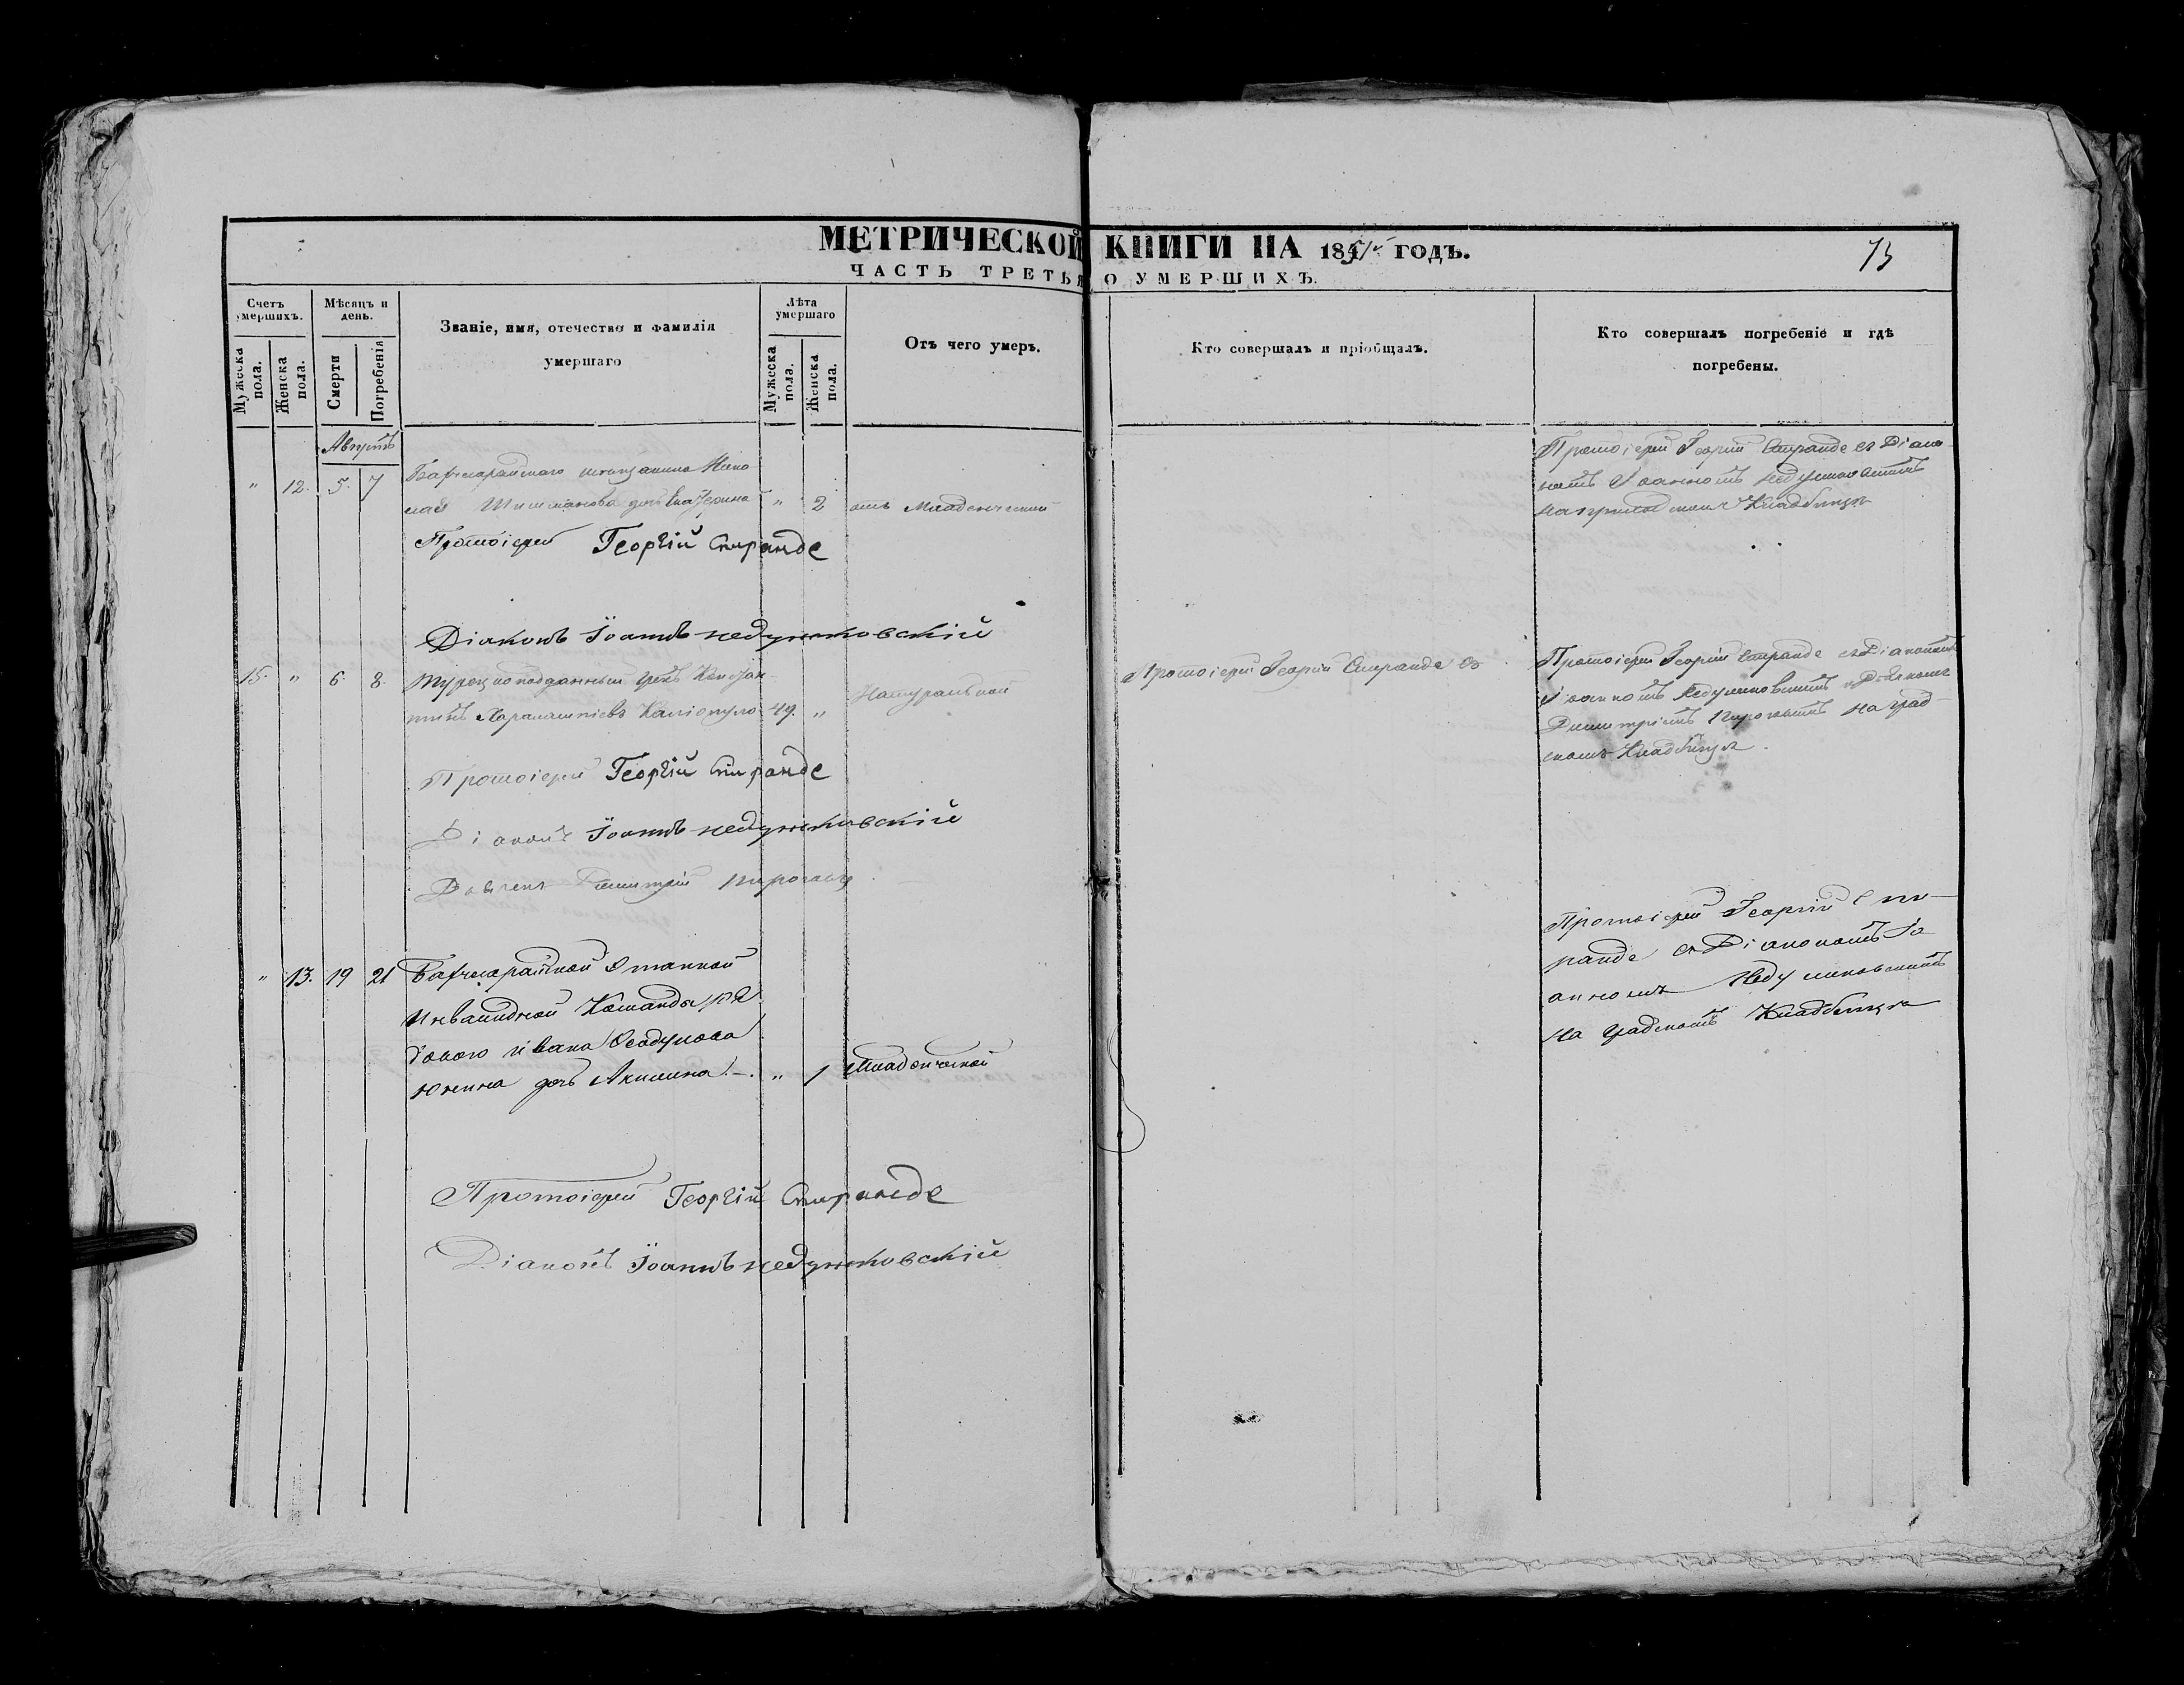 МЕТРИЧЕСКОЙ КНИГИ НА 1851й ГОДЪ.
73
ЧАСТЬ ТРЕТЬЯ О УМЕРШИХЪ.
Счетъ умершихъ.
Мужеска пола.
Женска пола.
Мѣсяцъ и день.
Смерти
Погребенія
Званіе, имя, отечество и фамилія
умершаго
Лѣта умершаго
Мужеска пола.
Женска пола.
Отъ чего умеръ.
Кто совершалъ и пріобщалъ.
Кто совершалъ погребеніе и гдѣ
погребены.
Августъ
" 12. 5. 7
Бахчисарайскаго мѣщанина Нико
лая Шишманова дочь Екатерина " 2 отъ Младенческой
Протоіерей Георгій Спиранде съ Діако
номъ Іоанномъ Недзумковскимъ
на приходскомъ Кладбищѣ
Протоіерей Георгій Спиранде
Діаконъ Іоаннъ недзумковскій
15. " 6. 8.
Турецкоподданный грекъ Констан
тинъ Харалампіевъ Каліопуло 49. " Натуральной
Протоіерей Георгій Спиранде
Протоіерей Георгій Спиранде съ Діакономъ
Іоанномъ Недзумковскимъ и Дьячкомъ
Димитріемъ на град
скомъ Кладбищѣ.
Протоіерей Георгій Спиранде
Діаконъ Іоаннъ недзумковскій
Дьячекъ Димитрій
" 13. 19 21
Бахчисарайской Этапной
Инвалидной Команды ря
доваго Ивана
дочь Акилина. " 1 Младенческой
Протоіерей Георгій Спи
ранде съ Діакономъ Іо
анномъ Недзумковскимъ
на градскомъ Кладбищѣ
Протоіерей Георгій Спиранде
Діаконъ Іоаннъ недзумковскій